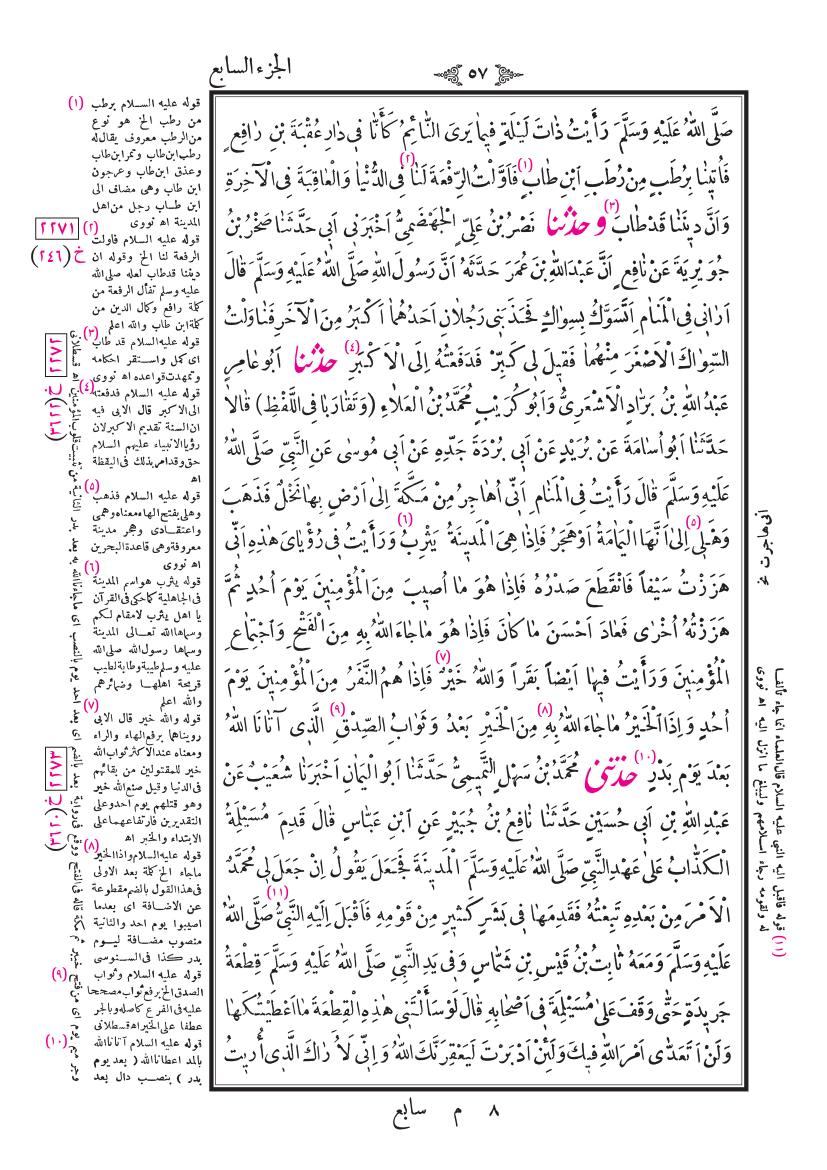 الجزء السابع
٥٧
صَلَّى اللهُ عَلَيْهِ وَسَلَّمَ رَأَيْتُ ذَاتَ لَيْلَةٍ فِيمَا يَرَى النَّائِمُ كَأَنَّا فِى دَارِ عُقْبَةَ بْنِ رَافِعٍ
فَأُتِينَا بِرُطَبٍ مِنْ رُطَبِ ابْنِ طَابٍ (١) فَأَوَّلْتُ الرِّفْعَةَ لَنَا (٢) فِى الدُّنْيَا وَالْعَاقِبَةَ فِى الْآخِرَةِ
وَأَنَّ دِينَنَا قَدْ طَابَ (٣) وحدثنا نَصْرُ بْنُ عَلِيٍّ الْجَهْضَمِيُّ أَخْبَرَنِى أَبِى حَدَّثَنَا صَخْرُ بْنُ
جُوَيْرِيَةَ عَنْ نَافِعٍ أَنَّ عَبْدَ اللهِ بْنَ عُمَرَ حَدَّثَهُ أَنَّ رَسُولَ اللهِ صَلَّى اللهُ عَلَيْهِ وَسَلَّمَ قَالَ
أَرَانِى فِى الْمَنَامِ أَتَسَوَّكُ بِسِوَاكٍ فَجَذَبَنِى رَجُلَانِ أَحَدُهُمَا أَكْبَرُ مِنَ الْآخَرِ فَنَاوَلْتُ
السِّوَاكَ الْأَصْغَرَ مِنْهُمَا فَقِيلَ لِى كَبِّرْ فَدَفَعْتُهُ إِلَى الْأَكْبَرِ (٤) حدثنا أَبُو عَامِرٍ
عَبْدُ اللهِ بْنُ بَرَّادٍ الْأَشْعَرِيُّ وَأَبُو كُرَيْبٍ مُحَمَّدُ بْنُ الْعَلَاءِ (وَتَقَارَبَا فِى اللَّفْظِ) قَالَا
حَدَّثَنَا أَبُو أُسَامَةَ عَنْ بُرَيْدٍ عَنْ أَبِى بُرْدَةَ جَدِّهِ عَنْ أَبِى مُوسَى عَنِ النَّبِيِّ صَلَّى اللهُ
عَلَيْهِ وَسَلَّمَ قَالَ رَأَيْتُ فِى الْمَنَامِ أَنِّى أُهَاجِرُ مِنْ مَكَّةَ إِلَى أَرْضٍ بِهَا نَخْلٌ فَذَهَبَ
وَهْلِى (٥) إِلَى أَنَّهَا الْيَمَامَةُ أَوْ هَجَرُ فَإِذَا هِىَ الْمَدِينَةُ يَثْرِبُ (٦) وَرَأَيْتُ فِى رُؤْيَاىَ هٰذِهِ أَنِّى
هَزَزْتُ سَيْفاً فَانْقَطَعَ صَدْرُهُ فَإِذَا هُوَ مَا أُصِيبَ مِنَ الْمُؤْمِنِينَ يَوْمَ أُحُدٍ ثُمَّ
هَزَزْتُهُ أُخْرَى فَعَادَ أَحْسَنَ مَا كَانَ فَإِذَا هُوَ مَا جَاءَ اللهُ بِهِ مِنَ الْفَتْحِ وَاجْتِمَاعِ
الْمُؤْمِنِينَ وَرَأَيْتُ فِيهَا أَيْضاً بَقَراً وَاللهُ خَيْرٌ (٧) فَإِذَا هُمُ النَّفَرُ مِنَ الْمُؤْمِنِينَ يَوْمَ
أُحُدٍ وَإِذَا الْخَيْرُ مَا جَاءَ اللهُ بِهِ (٨) مِنَ الْخَيْرِ بَعْدُ وَثَوَابُ الصِّدْقِ (٩) الَّذِى آتَانَا اللهُ
بَعْدَ يَوْمِ بَدْرٍ (١٠) حدثنى مُحَمَّدُ بْنُ سَهْلٍ التَّمِيمِيُّ حَدَّثَنَا أَبُو الْيَمَانِ أَخْبَرَنَا شُعَيْبٌ عَنْ
عَبْدِ اللهِ بْنِ أَبِى حُسَيْنٍ حَدَّثَنَا نَافِعُ بْنُ جُبَيْرٍ عَنِ ابْنِ عَبَّاسٍ قَالَ قَدِمَ مُسَيْلِمَةُ
الْكَذَّابُ عَلَى عَهْدِ النَّبِيِّ صَلَّى اللهُ عَلَيْهِ وَسَلَّمَ الْمَدِينَةَ فَجَعَلَ يَقُولُ إِنْ جَعَلَ لِى مُحَمَّدٌ
الْأَمْرَ مِنْ بَعْدِهِ تَبِعْتُهُ فَقَدِمَهَا فِى بَشَرٍ كَثِيرٍ مِنْ قَوْمِهِ فَأَقْبَلَ إِلَيْهِ النَّبِيُّ (١١) صَلَّى اللهُ
عَلَيْهِ وَسَلَّمَ وَمَعَهُ ثَابِتُ بْنُ قَيْسِ بْنِ شَمَّاسٍ وَفِى يَدِ النَّبِيِّ صَلَّى اللهُ عَلَيْهِ وَسَلَّمَ قِطْعَةُ
جَرِيدَةٍ حَتَّى وَقَفَ عَلَى مُسَيْلِمَةَ فِى أَصْحَابِهِ قَالَ لَوْ سَأَلْتَنِى هٰذِهِ الْقِطْعَةَ مَا أَعْطَيْتُكَهَا
وَلَنْ أَتَعَدَّى أَمْرَ اللهِ فِيكَ وَلَئِنْ أَدْبَرْتَ لَيَعْقِرَنَّكَ اللهُ وَإِنِّى لَأُرَاكَ الَّذِى أُرِيتُ
(١) قوله عليه السلام برطب
من رطب الخ هو نوع
من الرطب معروف يقال له
رطب ابن طاب وتمر ابن طاب
وعذق ابن طاب وعرجون
ابن طاب وهى مضاف الى
ابن طاب رجل من اهل
المدينة اه نووى
(٢) قوله عليه السلام فاولت
الرفعة لنا الخ وقوله ان
ديننا قدطاب لعله صلى الله
عليه وسلم تفأل الرفعة من
كلمة رافع وكمال الدين من
كلمة ابن طاب والله اعلم
(٣) قوله عليه السلام قد طاب
اى كمل واستقر احكامه
وتمهدت قواعده اه نووى
(٤) قوله عليه السلام فدفعته
الى الاكبر قال الابى فيه
ان السنة تقديم الاكبر لان
رؤيا الانبياء عليهم السلام
حق وقد امر بذلك فى اليقظة
اه
(٥) قوله عليه السلام فذهب
وهلى بفتح الهاء معناه وهمى
واعتقادى وهجر مدينة
معروفة وهى قاعدة البحرين
اه نووى
(٦) قوله يثرب هو اسم المدينة
فى الجاهلية كما حكى فى القرآن
يا اهل يثرب لا مقام لكم
وسماها الله تعالى المدينة
وسماها رسول الله صلى الله
عليه وسلم طيبة وطابة لطيب
قريحة اهلها وضمائرهم
والله اعلم
(٧) قوله والله خير قال الابى
رويناهما برفع الهاء والراء
ومعناه عند الاكثر ثواب الله
خير للمقتولين من بقائهم
فى الدنيا وقيل صنع الله خير
وهو قتلهم يوم احد وعلى
التقديرين فارتفاعهما على
الابتداء والخبر اه
(٨) قوله عليه السلام واذا الخير
ماجاء الخ كلمة بعد الاولى
فى هذا القول بالضم مقطوعة
عن الاضافة اى بعدما
اصيبوا يوم احد والثانية
منصوب مضافة ليوم
بدر كذا فى السنوسى
(٩) قوله عليه السلام وثواب
الصدق الخ برفع ثواب مصححا
عليه فى الفرع كاصله وبالجر
عطفا على الخير اه قسطلانى
(١٠) قوله عليه السلام آتانا الله
بالمد اعطانا الله ( بعد يوم
بدر ) بنصب دال بعد
٢٢٧١
خ (٢٤٦)
٢٢٧٢
٢٢٧٣
انى هاجرت نخ
(١١) قوله فاقبل اليه النبى عليه السلام قال العلماء انما جاء تألفا
له ولقومه رجاء اسلامهم وليبلغ ما انزل اليه اه نووى
٨ م سابع